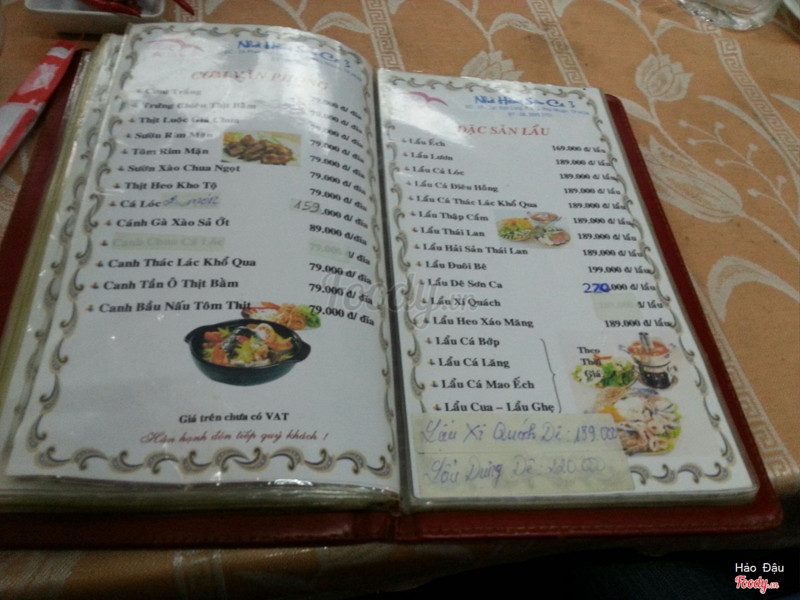 CƠM VĂN PHÒNG
Cơm Trắng
Trứng Chiên Thịt Bằm 79.000 đ/ đĩa
Thịt Luộc
Sườn Ran Mặn 79.000 đ/ đĩa
Tôm Rim Mặn 79.000 đ/ đĩa
Sườn Xào Chua Ngọt 79.000 đ/ đĩa
Thịt Heo Kho Tộ 79.000 đ/ đĩa
Cá Lóc 159.000 đ/ đĩa
Cánh Gà Xào Sả Ớt 89.000 đ/ đĩa
Canh Chua Cá Lóc 79.000 đ/ đĩa
Canh Thác Lác Khổ Qua 79.000 đ/ đĩa
Canh Tần Ô Thịt Bằm 79.000 đ/ đĩa
Canh Bầu Nấu Tôm Thịt 79.000 đ/ đĩa
Giá trên chưa có VAT
Hân hạnh đón tiếp quý khách !
Nhà Hàng Sơn Ca 3
ĐẶC SẢN LẨU
Lẩu Ếch 169.000 đ/ lẩu
Lẩu Lươn 189.000 đ/ lẩu
Lẩu Cá Lóc 189.000 đ/ lẩu
Lẩu Cá Diêu Hồng 189.000 đ/ lẩu
Lẩu Cá Thác Lác Khổ Qua 189.000 đ/ lẩu
Lẩu Thập Cẩm 189.000 đ/ lẩu
Lẩu Thái Lan 189.000 đ/ lẩu
Lẩu Hải Sản Thái Lan 189.000 đ/ lẩu
Lẩu Đuôi Bê 199.000 đ/ lẩu
Lẩu Dê Sơn Ca 220.000 đ/ lẩu
Lẩu Xí Quách đ/ lẩu
Lẩu Heo Xáo Măng 189.000 đ/ lẩu
Lẩu Cá Bớp
Lẩu Cá Lăng
Lẩu Cá Mao Ếch
Lẩu Cua – Lẩu Ghẹ
Theo
Thời
Giá
Lẩu Xí Quách Dê - 189.000
Lẩu Dựng Dê - 220.000
Foody.vn
Hảo Đậu
Foody.vn